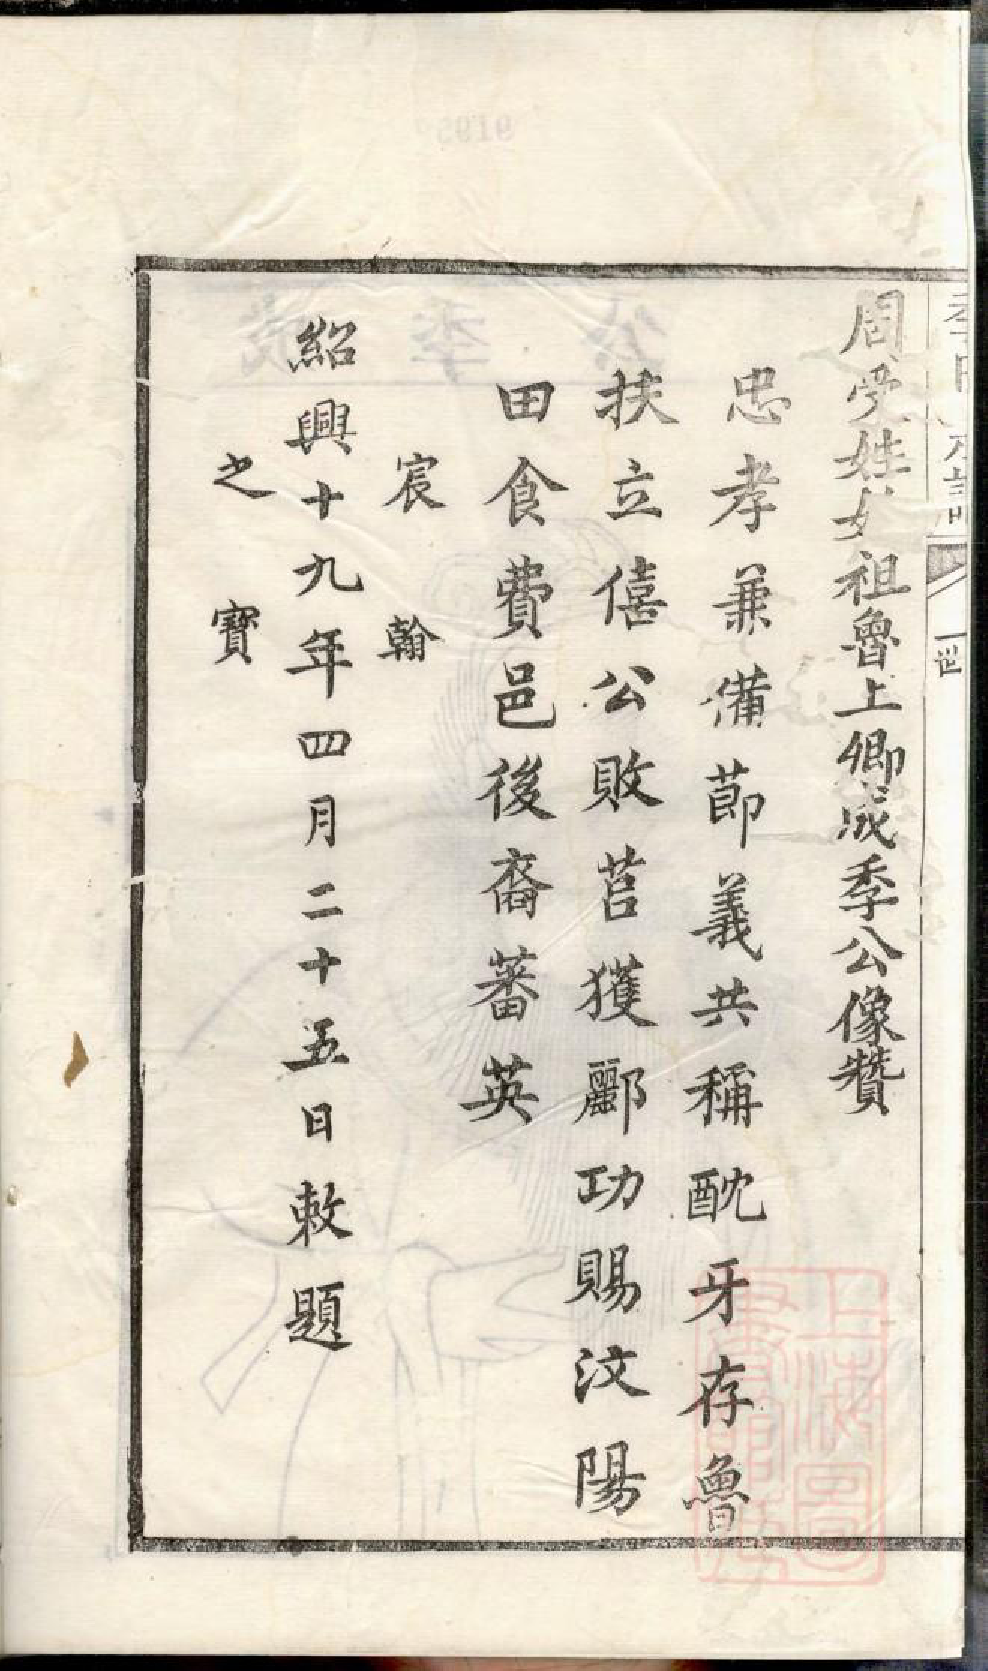 周受姓始祖魯上卿成季公像贊
忠孝兼備節義共稱酖牙存魯
扶立僖公敗莒獲酈功賜汶陽
田食費邑後裔蕃英
宸翰
紹興十九年四月二十五日敕題
之寶
一世
上海圖
書館藏